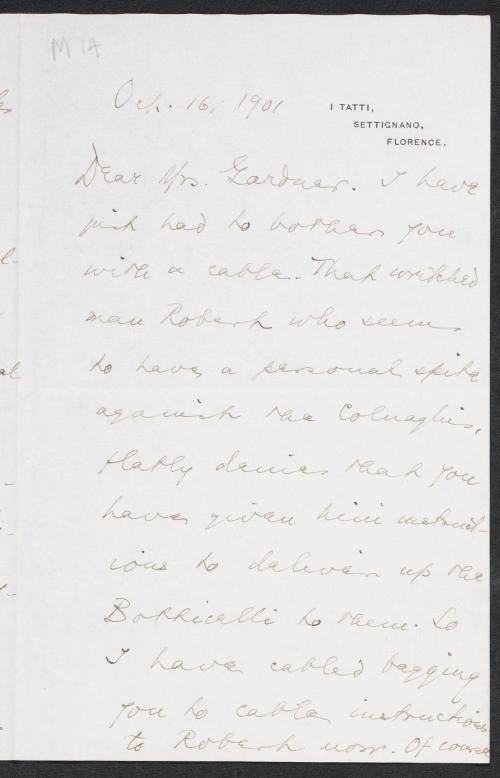 M 1A
Oct. 16, 1901
I TATTI,
SETTIGNANO,
FLORENCE.
Dear Mrs. Gardner. I have
just had to bother you
with a cable. That wretched
man Robert who seems
to have a personal spite
against the Colnaghis,
flatly denies that you
have given him instruct-
ions to deliver up the
Botticelli to them. So
I have cabled begging
you to cable instructions
to Robert now. Of course